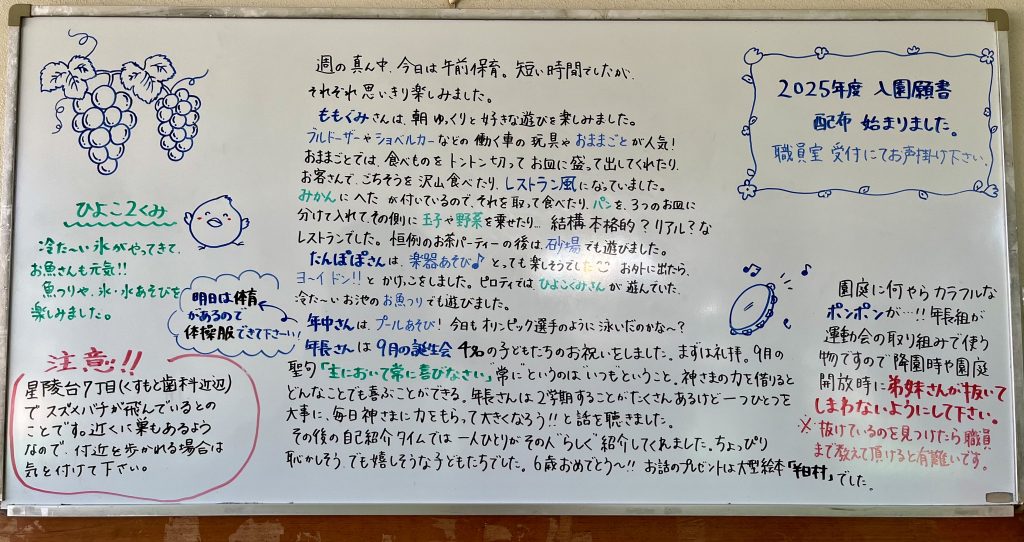 週の真ん中、今日は午前保育。短い時間でしたが、
それぞれ思いきり楽しみました。
ももぐみさんは、朝ゆっくりと好きな遊びを楽しみました。
ブルドーザーやショベルカーなどの働く車の玩具やおままごとが人気!
おままごとでは、食べものをトントン切ってお皿に盛って出してくれたり、
お客さんで、ごちそうを沢山食べたり、レストラン風になっていました。
みかんにへたが付いているので、それを取って食べたり、パンを、3つのお皿に
分けて入れて、その側に玉子や野菜を乗せたり… 結構本格的?リアル?な
レストランでした。恒例のお茶パーティーの後は、砂場でも遊びました。
たんぽぽさんは、楽器あそび♪とっても楽しそうでした お外に出たら、
ヨーイドン!!とかけっこをしました。ピロティでは、ひよこぐみさんが遊んでいた、
冷た〜いお池のお魚つりでも遊びました。
年中さんは、プールあそび!今日もオリンピック選手のように泳いだのかな〜?
年長さんは9月の誕生会 4名の子どもたちのお祝いをしました。まずは礼拝。9月の
聖句「主において常に喜びなさい」常に"というのは"いつも"ということ。神さまの力を借りると
どんなことでも喜ぶことができる。年長さんは2学期することがたくさんあるけど一つひとつを
大事に、毎日神さまに力をもらって大きくなろう!!と話を聴きました。
その後の自己紹介タイムでは一人ひとりがその人"らしく"紹介してくれました。ちょっぴり
恥かしそう、でも嬉しそうな子どもたちでした。6歳おめでとう〜!! お話のプレゼントは大型絵本「半日村」でした。
ひよこ2くみ
冷た〜い氷がやってきて、
お魚さんも元気!!
魚つりや、氷・水あそびを
楽しみました。
明日は体育
があるので
体操服できて下さーい!
注意!!
星陵台7丁目(くすもと歯科近辺)
でスズメバチが飛んでいるとの
ことです。近くに巣もあるよう
なので、付近を歩かれる場合は
気を付けて下さい。
2025年度 入園願書
配布 始まりました。
職員室 受付にてお声掛け下さい。
園庭に何やらカラフルな
ポンポンが…!!年長組が
運動会の取り組みで使う
物ですので降園時や園庭
開放時に弟妹さんが抜いて
しまわないようにして下さい。
※抜けているのを見つけたら職員
まで教えて頂けると有難いです。